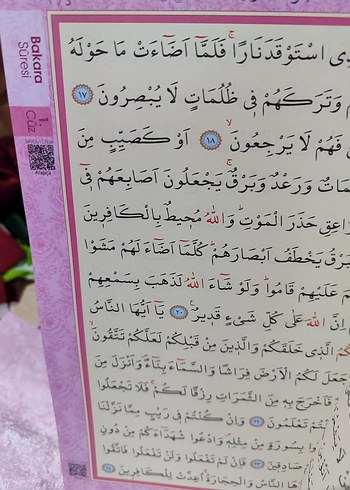 Bakara
Sûresi
1.
Cüz
ى اسْتَوْقَدَ نَارًاۚ فَلَمَّٓا اَضَٓاءَتْ مَا حَوْلَهُ
وَتَرَكَهُمْ فٖى ظُلُمَاتٍ لَا يُبْصِرُونَ ١٧
فَهُمْ لَا يَرْجِعُونَۙ ١٨ اَوْ كَصَيِّبٍ مِنَ
وَرَعْدٌ وَبَرْقٌۚ يَجْعَلُونَ اَصَابِعَهُمْ فٖٓى
حَذَرَ الْمَوْتِؕ وَاللّٰهُ مُحٖيطٌ بِالْكَافِرٖينَ
يَخْطَفُ اَبْصَارَهُمْؕ كُلَّمَٓا اَضَٓاءَ لَهُمْ مَشَوْا
عَلَيْهِمْ قَامُواؕ وَلَوْ شَٓاءَ اللّٰهُ لَذَهَبَ بِسَمْعِهِمْ
اِنَّ اللّٰهَ عَلٰى كُلِّ شَیْءٍ قَدٖيرٌ ٢٠ يَٓا اَيُّهَا النَّاسُ
الَّذٖى خَلَقَكُمْ وَالَّذٖينَ مِنْ قَبْلِكُمْ لَعَلَّكُمْ تَتَّقُونَۙ
جَعَلَ لَكُمُ الْاَرْضَ فِرَاشًا وَالسَّمَٓاءَ بِنَٓاءً وَاَنْزَلَ مِنَ
فَاَخْرَجَ بِهٖ مِنَ الثَّمَرَاتِ رِزْقًا لَكُمْۚ فَلَا تَجْعَلُوا
تَعْلَمُونَ ٢٢ وَاِنْ كُنْتُمْ فٖى رَيْبٍ مِمَّا نَزَّلْنَا
بِسُورَةٍ مِنْ مِثْلِهٖ وَادْعُوا شُهَدَٓاءَكُمْ مِنْ دُونِ
صَادِقٖينَ ٢٣ فَاِنْ لَمْ تَفْعَلُوا وَلَنْ تَفْعَلُوا فَاتَّقُوا
النَّاسُ وَالْحِجَارَةُۚ اُعِدَّتْ لِلْكَافِرٖينَ ٢٤